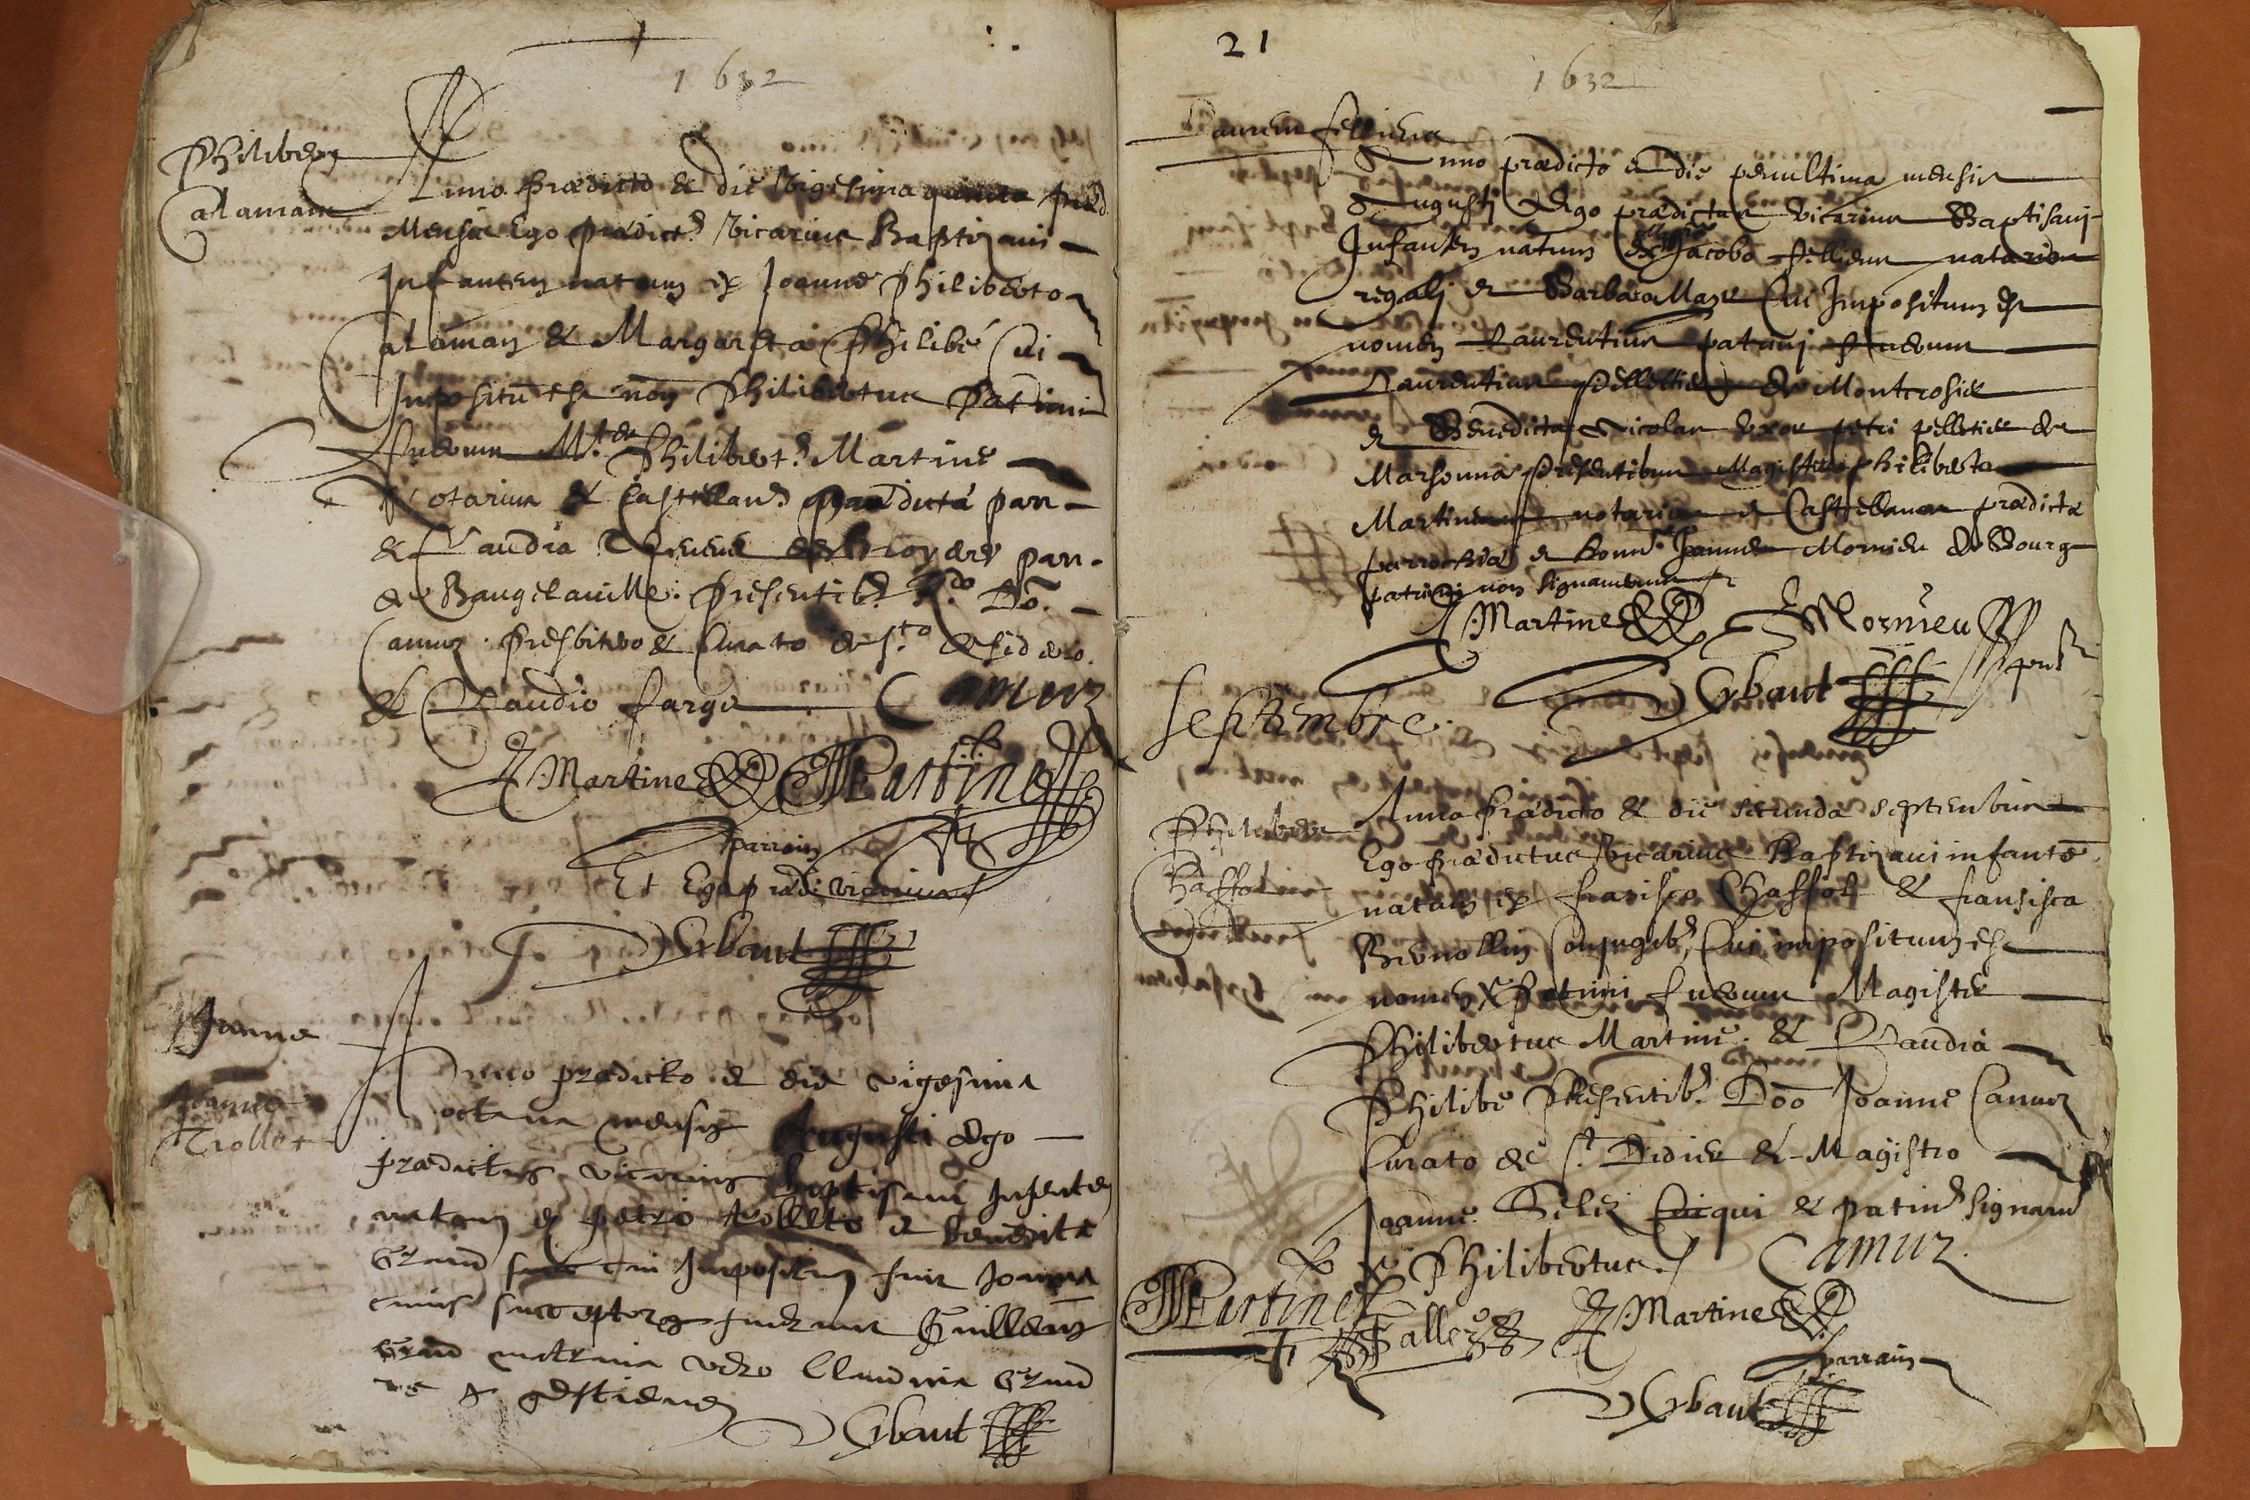 1632
Philibert
Calaman
Anno prædicto & die Vigesima quinta præd.
Mensis Ego prædict. Vicarius Baptizavi
Infantem natum ex Joanne Philiberto
Calaman & Margareta Philibé Cui
Impositū est nom Philibertus Patrini
fuerunt Mr Philibert. Martine
Notarius & Castellan. prædictá par
& Claudia par.
de Baugelaville. Presentib. Rdo Dō.
Camuz Presbitero & Curato de Sto desiderio.
& Claudio farge
Camuz
Martine Martine
parrain
Et Ego prædi. vicarius
Urbaut
Jeanne
Jeanne
Trollet
Anno prædicto & die vigesima
octava mensis Augusti Ego
prædictus vicarius baptisavi Infantem
natam ex petro trollete & benedicta
Grand cui Impositum fuit Joanna
cuius susceptores fuerunt Guillerm
Grand matrina vero Claudina Grand
Urbaut
21
1632
Laurent pelletier
Anno prædicto et die penultima mensis
Augusti Ego prædictus Vicarius Baptisavi
Infantem natum ex Jacobo pelletier notario
regali et Barbara Cui Impositum est
nomen Laurentius patrini fuerunt
Laurentius Pelletier de Montcrosier
et Benedicta Nicolas Uxor petri pelletier de
Marsonna presentibus Magistro philiberto
Martine notario et Castellano prædicta
parrochia et honn. Joanne Mornieu de Bourg
patrini non signaverunt
Martine Mornieu
Urbaut
Septembre.
Philiberte
Chassot
Anno prædicto & die secunda septembris
Ego prædictus Vicarius Baptizavi infantē
natam ex fransisco Chassot & fransisca
Brunollin Conjugib. Cui impositum est
nomen X Patrini fuerunt Magister
Philibertus Martine. & Claudia
Philibé Presentib. Dōo Joanne Camuz
Curato de St Didier & Magistro
Joanne qui & patrin. signaru
X Philibertus
Camuz
Martine
Martine
parrain
Urbaut